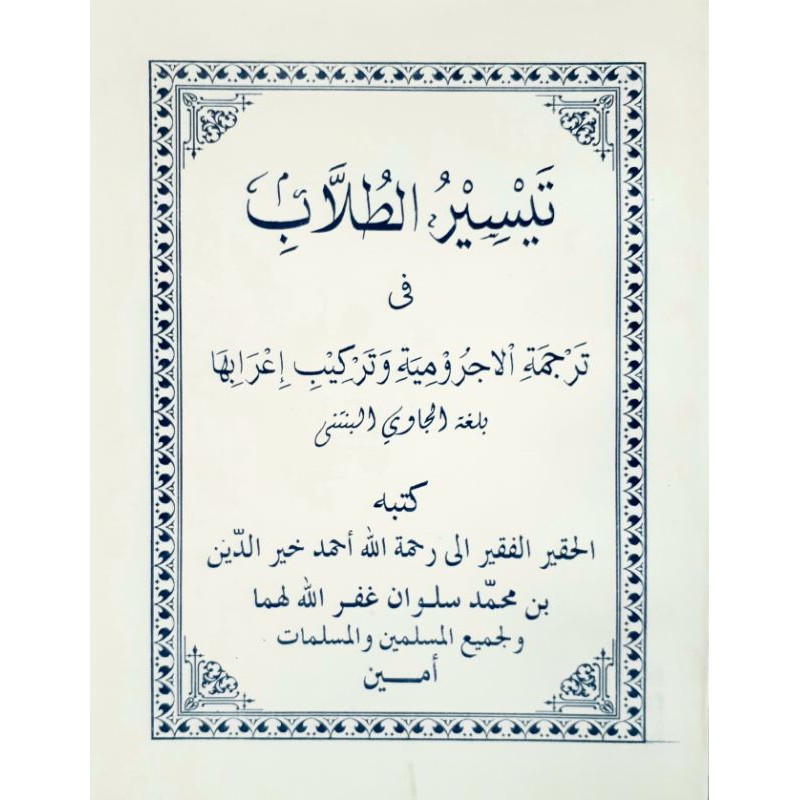 تَيْسِيْرُ الطُلَّابِ
فى
تَرْجَمَةِ الاجرُوْمِيَةِ وَتَرْكِيْبِ إِعْرَابِهَا
بلغة الجاوي البنتنى
كتبه
الحقير الفقير الى رحمة الله أحمد خير الدّين
بن محمّد سلوان غفر الله لهما
ولجميع المسلمين والمسلمات
أمين